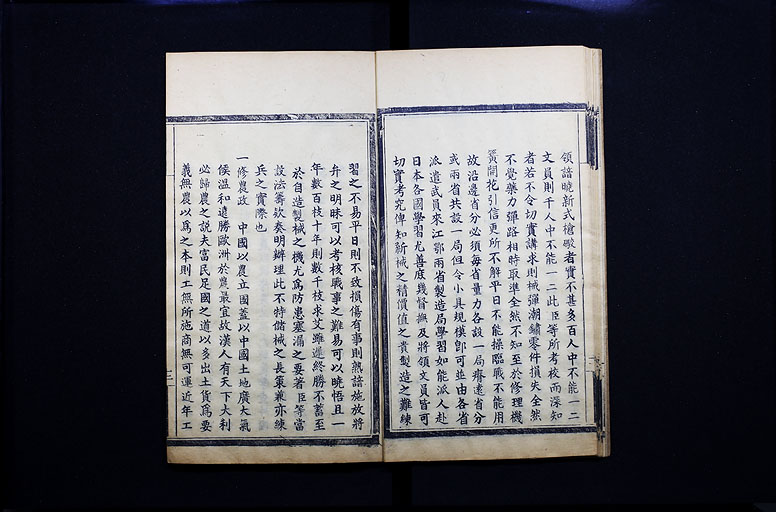 領諳曉新式槍礮者實不甚多百人中不能一二
文員則千人中不能一二此臣等所考校而深知
者若不令切實講求則械彈潮鏽零件損失全然
不覺藥力彈路相時取準全然不知至於修理機
簧開花引信更所不解平日不能操臨戰不能用
故沿邊省分必須每省量力各設一局瘠遠省分
或兩省共設一局但令小具規模卽可並由各省
派遣武員來江鄂兩省製造局學習如能派人赴
日本各國學習尤善庶幾督撫及將領文員皆可
切實考究俾知新械之精價值之貴製造之難練
習之不易平日則不致損傷有事則熟諳施放將
弁之明昧可以考核戰事之難易可以曉悟且一
年數百枝十年則數千枝求艾雖遲終勝不蓄至
於自造製械之機尤爲防患塞漏之要著臣等當
設法籌欵奏明辦理此不特儲械之長策兼亦練
兵之實際也
一修農政 中國以農立國蓋以中國土地廣大氣
候溫和遠勝歐洲於農最宜故漢人有天下大利
必歸農之說夫富民足國之道以多出土貨爲要
義無農以爲之本則工無所施商無可運近年工
三